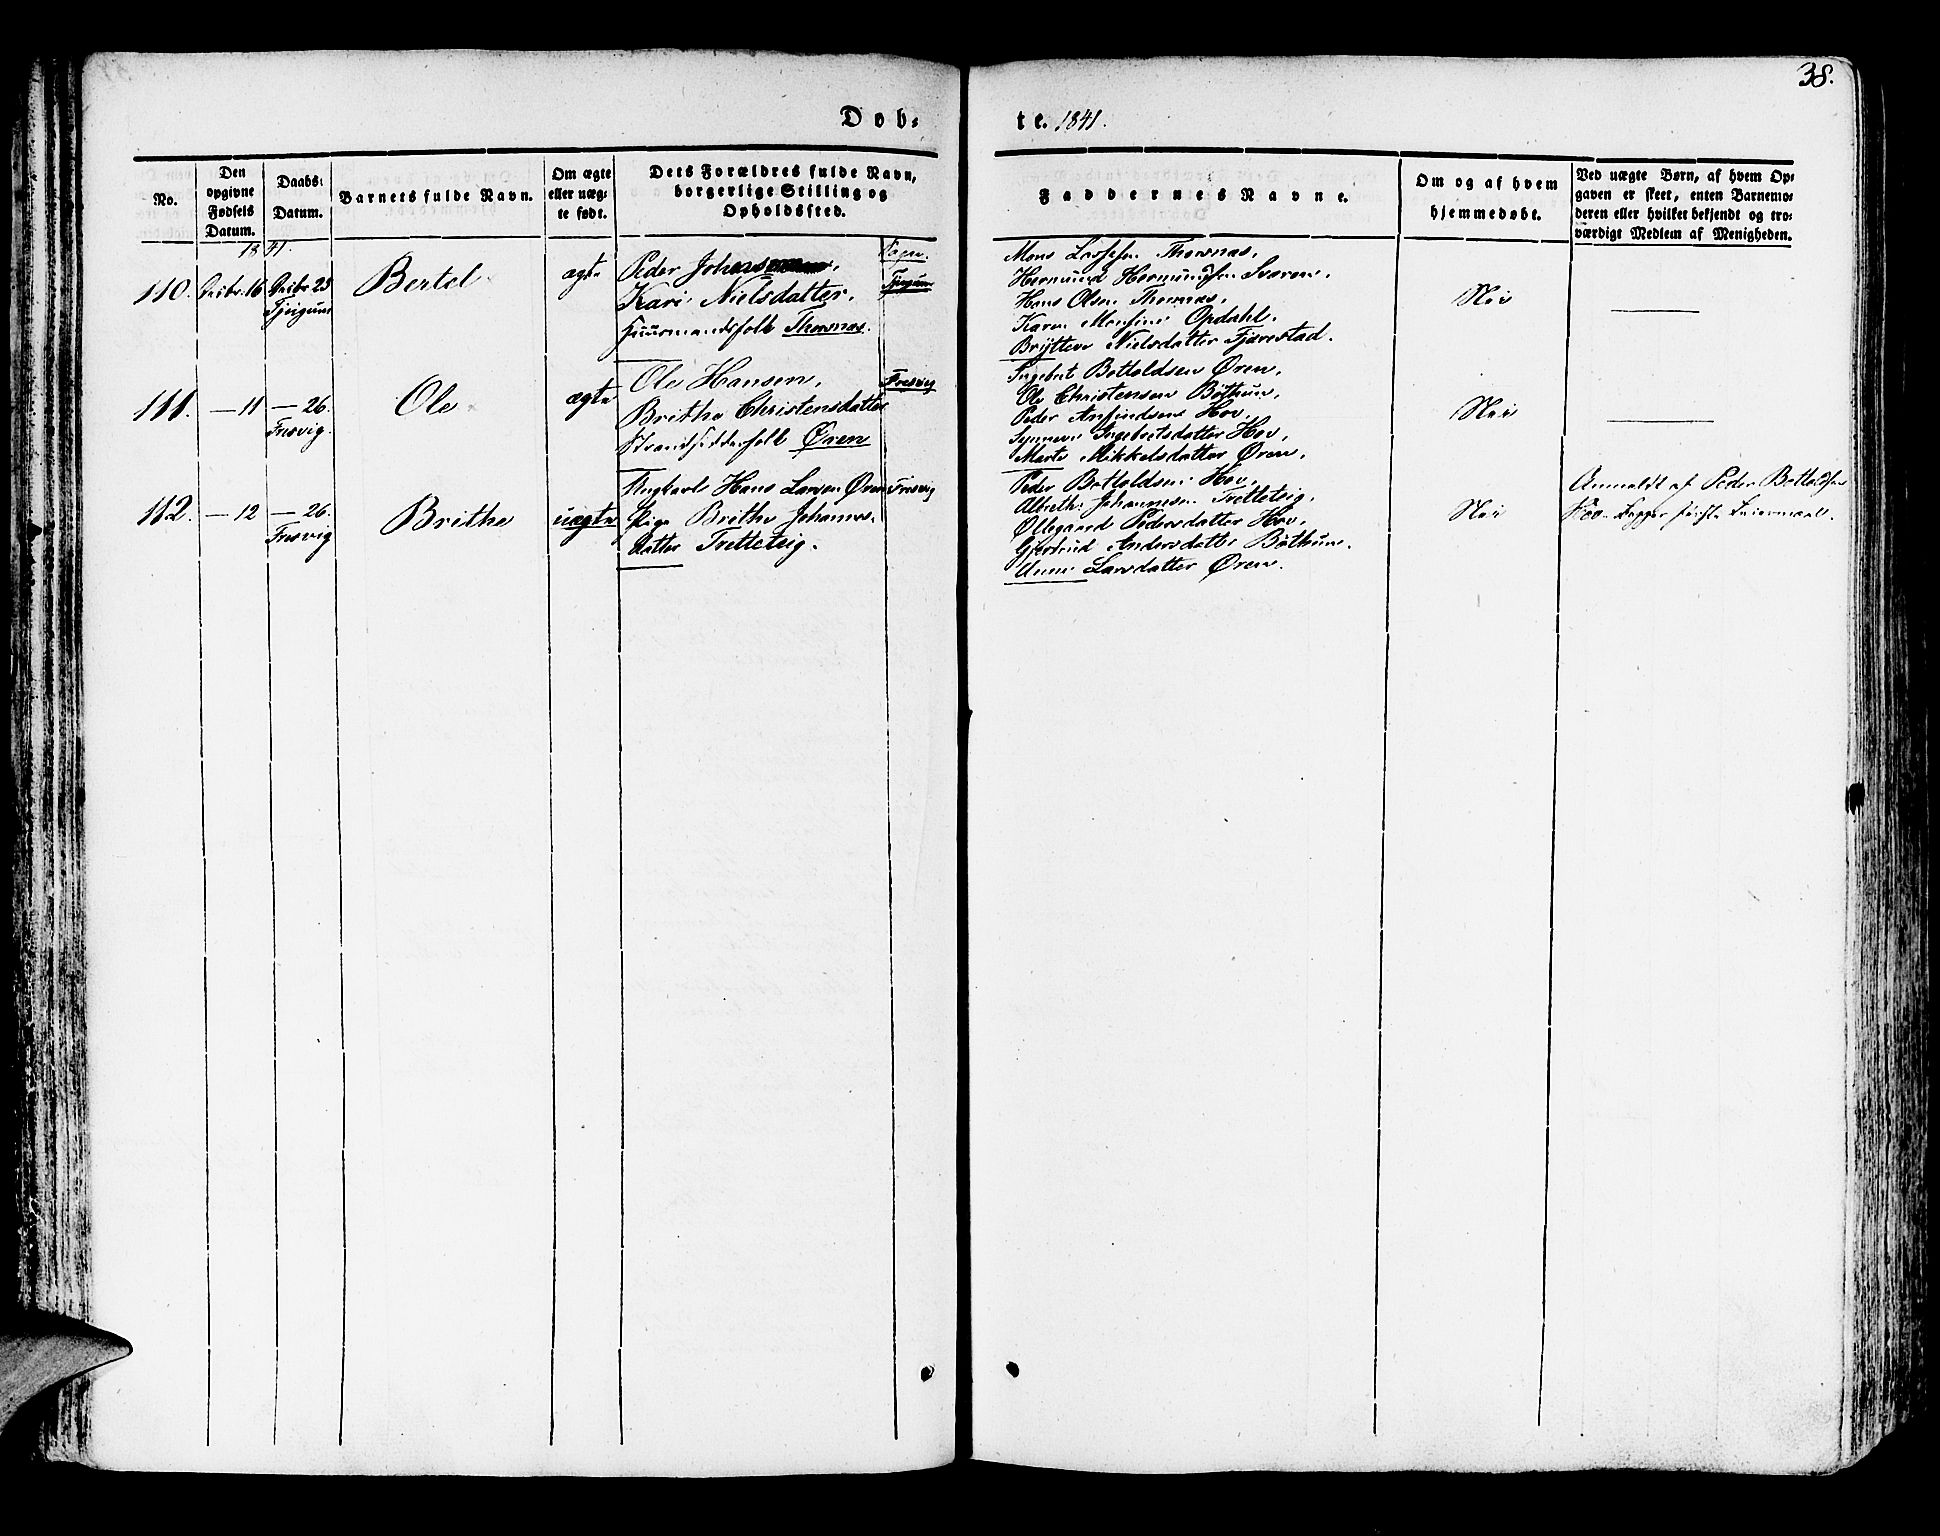 38.
Døb-
te. 1841.
No.
Den opgivne Fødsels Datum.
Daabs-Datum.
Barnets fulde Navn.
Om ægte eller uægte født.
Dets Forældres fulde Navn, borgerlige Stilling og Opholdssted.
Faddernes Navne.
Om og af hvem hjemmedøbt.
Ved uægte Børn, af hvem Opgaven er skeet, enten Barnemoderen eller hvilket bekjendt og troværdigt Medlem af Menigheden.
1841.
Sogn.
110.
16
23
Bertel
ægte
Peder
Kari Nielsdatter,
Huusmandsfolk Thorsnæs.
Mons Lassesen Thorsnæs,
Hermund Hermundsen Sværen,
Hans Olsen Thorsnæs,
Karen Monsine Opdahl,
Brytteve Nielsdatter Fjærestad.
Nei
111.
— 11
— 26.
Fresvig.
Ole
ægte
Ole Hansen,
Brithe Christensdatter
Strandsidderfolk Øren
Fresvig
Ingebret Botholdsen Øren,
Ole Christensen Bøthun,
Peder Anfindsen Hov,
Synneve Ingebretsdatter Hov,
Marte Mikkelsdatter Øren,
Nei
112.
— 12
— 26.
Fresvig
Brithe
uægte
Ungkarl Hans Larsen Øren
Pige Brithe Johannes-
datter Tretteteig.
Fresvig
Peder Botholdsen Hov,
Albreth Johannesen Tretteteig,
Øllegaard Pedersdatter Hov,
Gjertrud Andersdatter Bøthun.
Anne Larsdatter Øren.
Nei
Anmeldt af Peder Botholdsen
Hov. Begges første Leiermaal.